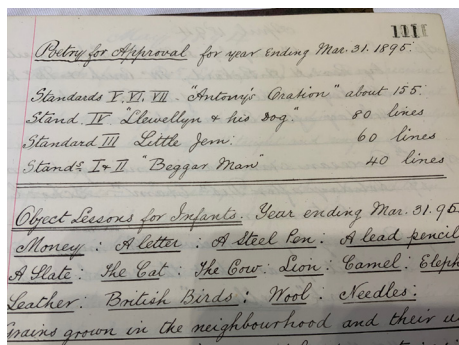 111
Poetry for Approval for year ending Mar. 31. 1895.
Standards V. VI. VII. "Antony's Oration" about 155
Stand. IV "Llewellyn & his dog." 80 lines
Standard III Little Jem: 60 lines
Stands I & II "Beggar Man" 40 lines
Object Lessons for Infants. Year ending Mar. 31. 95
Money : A letter : A Steel Pen : A lead pencil
A Slate : The Cat : The Cow : Lion : Camel : Eleph
Leather : British Birds : Wool . Needles :
Grains grown in the neighbourhood and their u